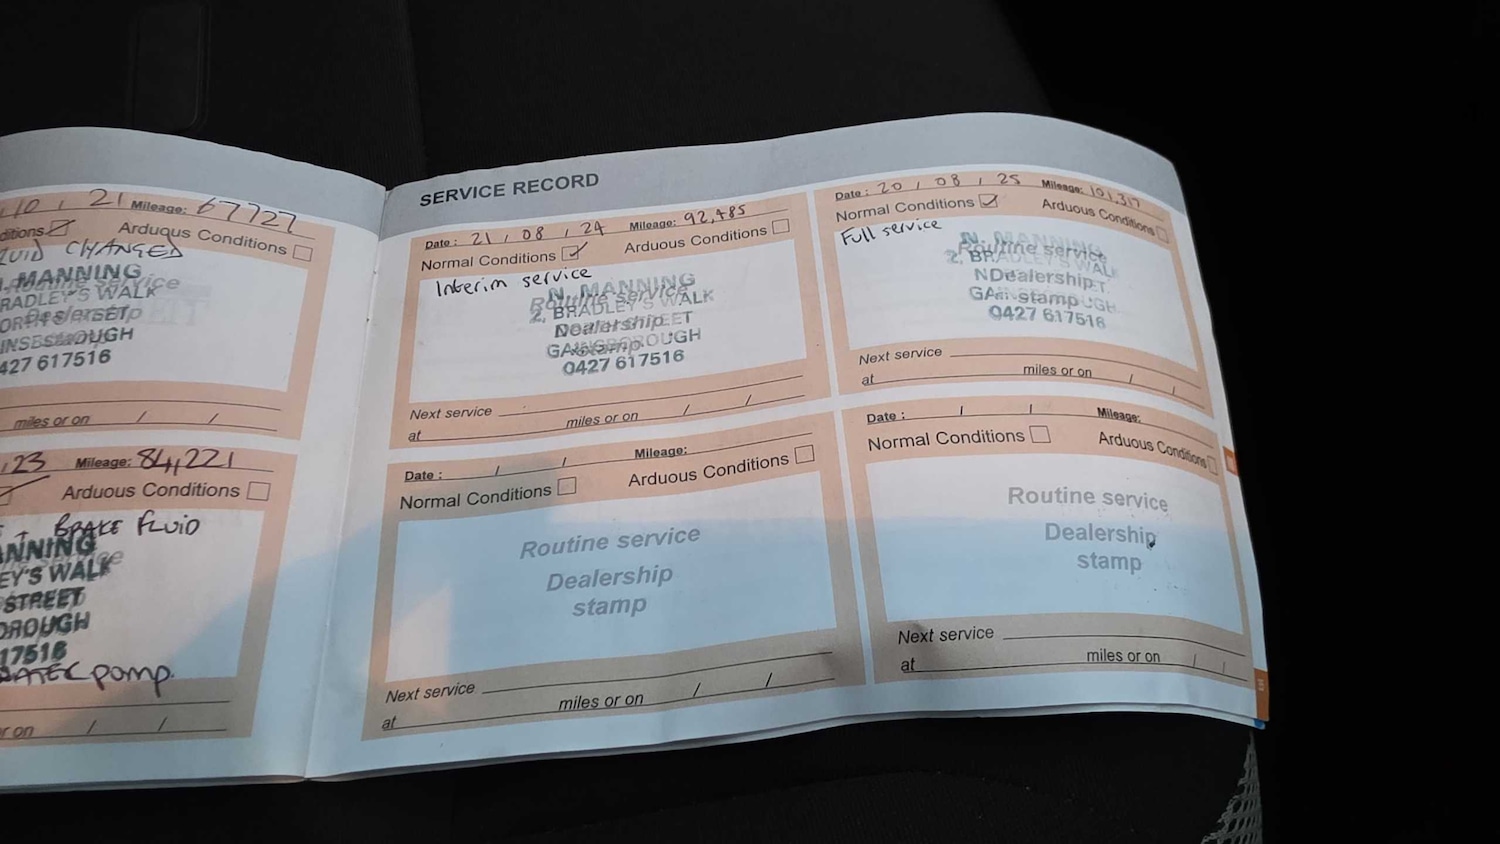 /10 / 21 Mileage: 67727
ditions Arduous Conditions
UID CHANGED
. MANNING
RADLEY'S WALK
427 617516
miles or on / /
.23 Mileage: 84,221
Arduous Conditions
+ BRAKE FLUID
ANNING
EY'S WALK
STREET
OROUGH
17516
pomp.
r on / /
SERVICE RECORD
Date : 21 / 08 / 24 Mileage: 92,485
Normal Conditions Arduous Conditions
Interim service
N. MANNING
Routine service
2, BRADLEY'S WALK
Dealership
GAINSBOROUGH
stamp
0427 617516
Next service
at miles or on / /
Date : 20 / 08 / 25 Mileage: 101,317
Normal Conditions Arduous Conditions
Full service
N. MANNING
Routine service
2, BRADLEY'S WALK
Dealership
stamp
0427 617516
Next service
at miles or on / /
Date : / / Mileage:
Normal Conditions Arduous Conditions
Routine service
Dealership
stamp
Next service
at miles or on / /
Date : / / Mileage:
Normal Conditions Arduous Conditions
Routine service
Dealership
stamp
Next service
at miles or on / /